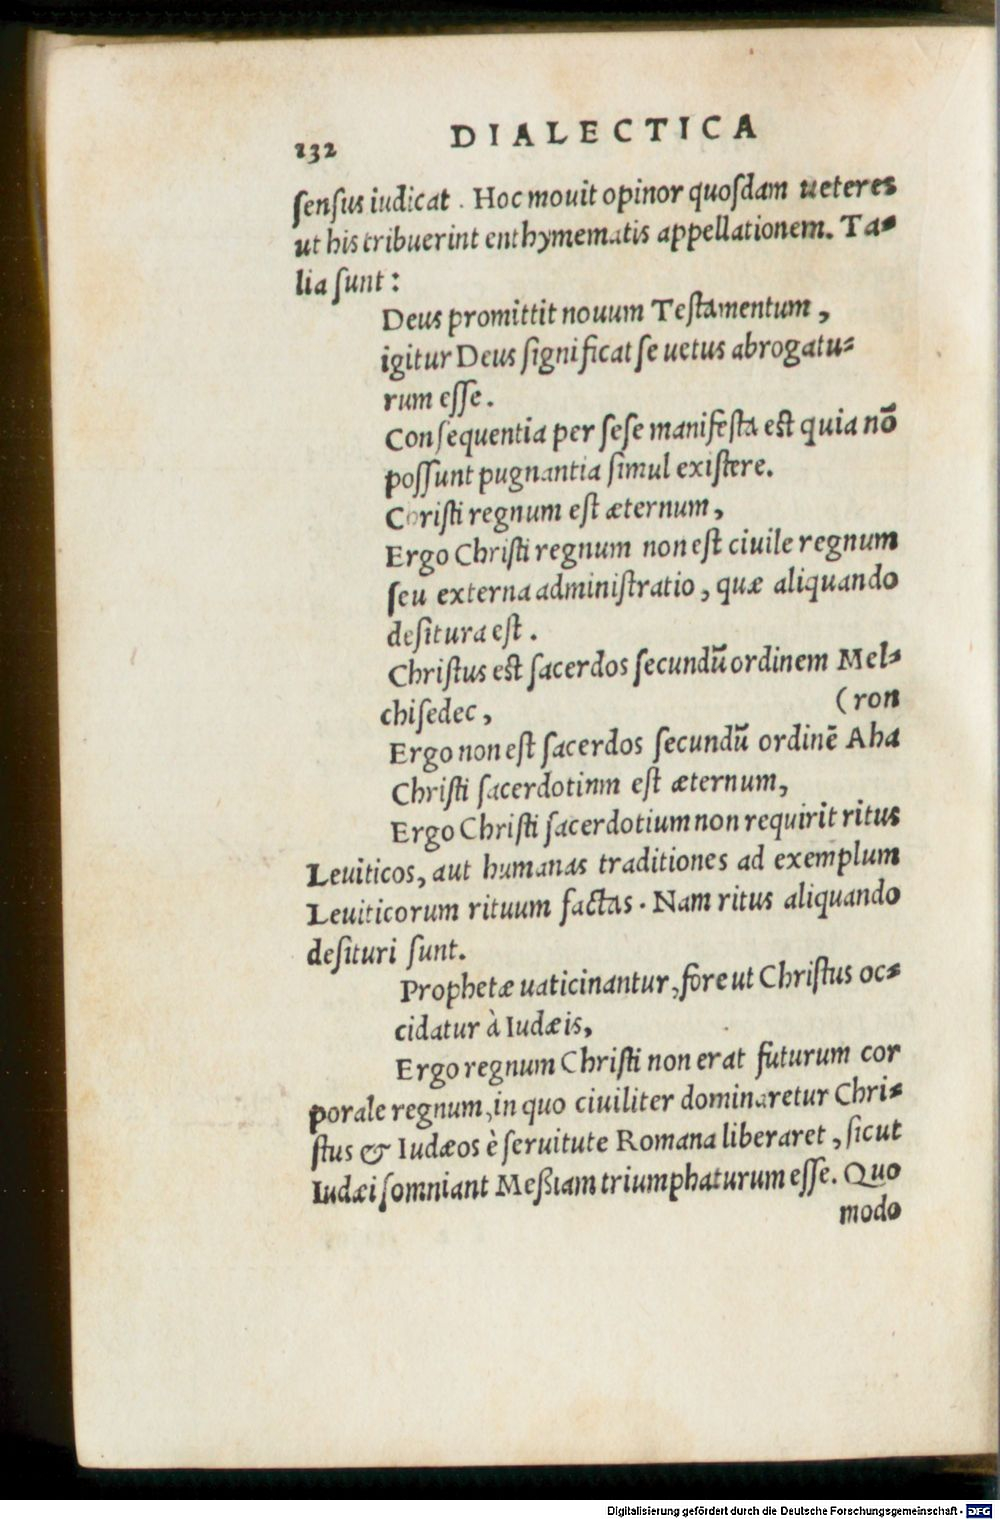 132 DIALECTICA
ſenſus iudicat . Hoc mouit opinor quoſdam ueteres
ut his tribuerint enthymematis appellationem. Ta⸗
lia ſunt :
Deus promittit nouum Teſtamentum ,
igitur Deus ſignificat ſe uetus abrogatu⸗
rum eſſe .
Conſequentia per ſeſe manifeſta eſt quia nõ
poſſunt pugnantia ſimul exiſtere.
Coriſti regnum eſt æternum ,
Ergo Chriſti regnum non eſt ciuile regnum
ſeu externa adminiſtratio , quæ aliquando
deſitura eſt .
Chriſtus eſt ſacerdos ſecundũ ordinem Mel⸗
chiſedec , (ron
Ergo non eſt ſacerdos ſecundũ ordinẽ Aha
Chriſti ſacerdotinm eſt æternum,
Ergo Chriſti ſacerdotium non requirit ritus
Leuiticos, aut humanas traditiones ad exemplum
Leuiticorum rituum factas . Nam ritus aliquando
deſituri ſunt.
Prophetæ uaticinantur, fore ut Chriſtus oc⸗
cidatur à Iudæis,
Ergo regnum Chriſti non erat futurum cor
porale regnum, in quo ciuiliter dominaretur Chri⸗
ſtus & Iudæos è ſeruitute Romana liberaret , ſicut
Iudæi ſomniant Meßiam triumphaturum eſſe. Quo
modo
Digitalisierung gefördert durch die Deutsche Forschungsgemeinschaft - DFG